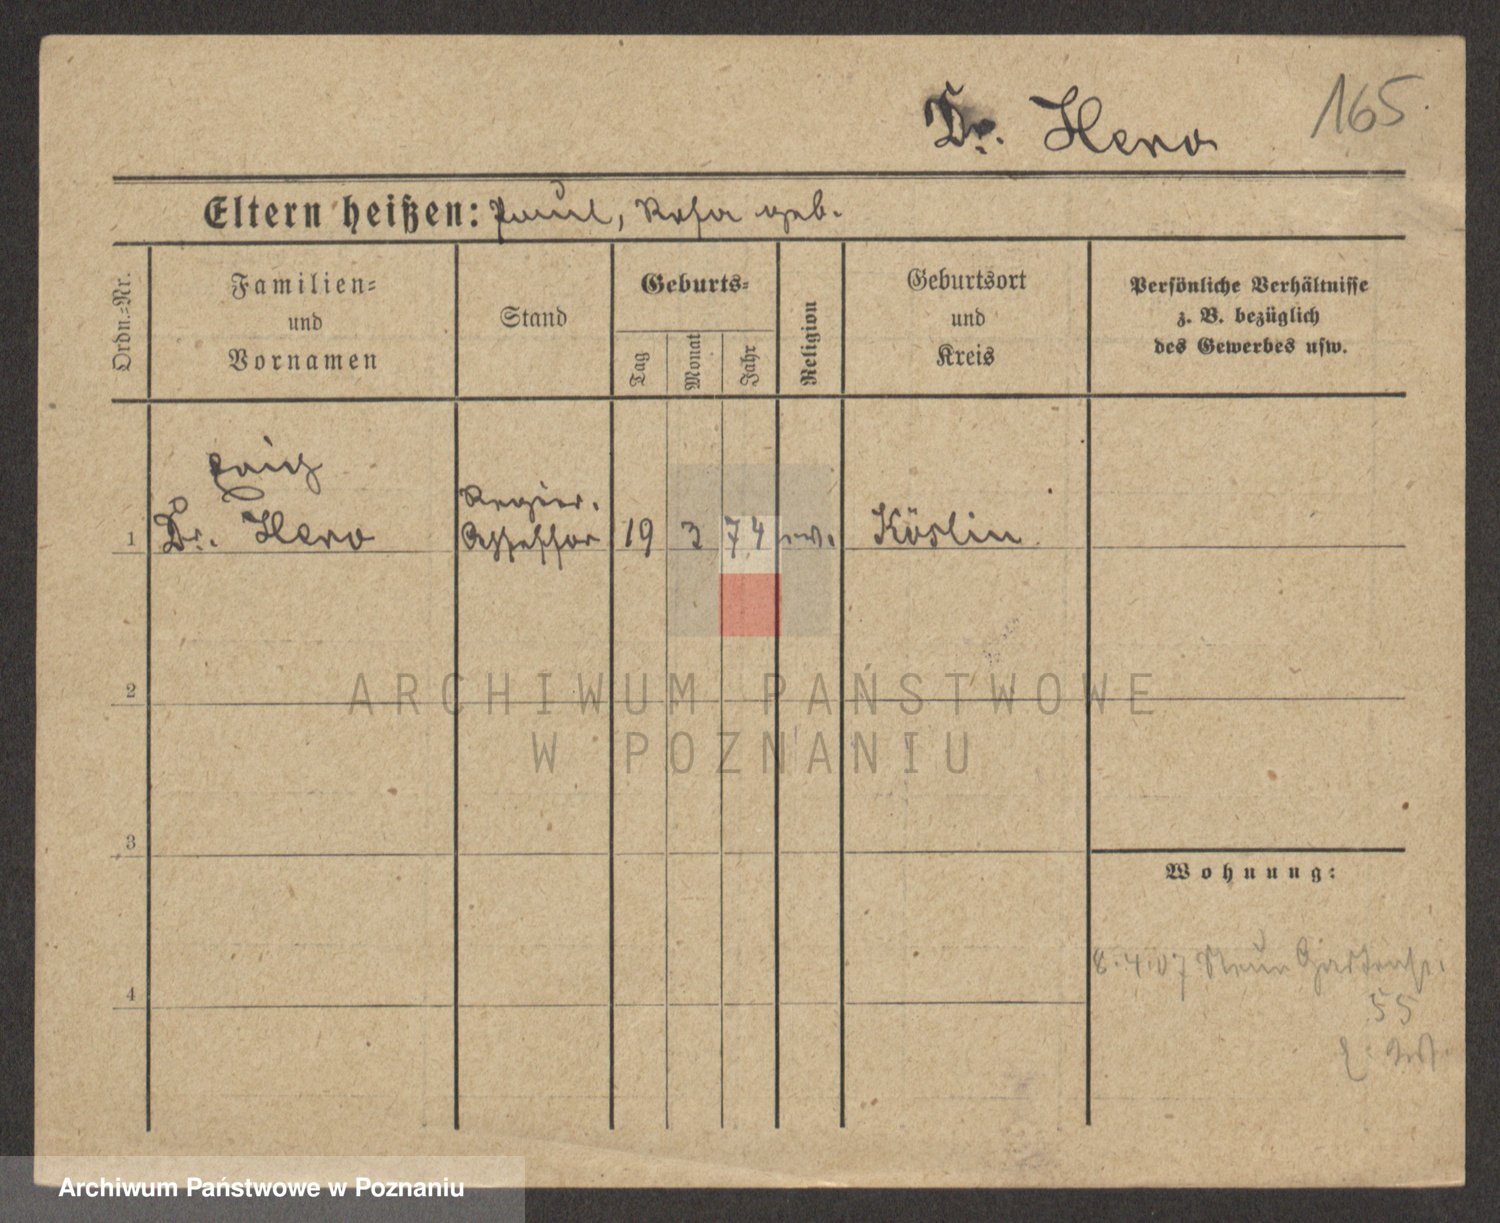 165.
Dr. Hero
Eltern heißen: Paul, Rosa geb.
Ordn.=Nr.
Familien=
und
Vornamen
Stand
Geburts=
Tag
Monat
Jahr
Religion
Geburtsort
und
Kreis
Persönliche Verhältnisse
z. B. bezüglich
des Gewerbes usw.
1
Dr. Hero
Regier.
Assessor
19
3
74
ev.
Köslin
2
3
4
Wohnung:
8.4.07 Neue Gartenstr.
55
ARCHIWUM PAŃSTWOWE
W POZNANIU
Archiwum Państwowe w Poznaniu